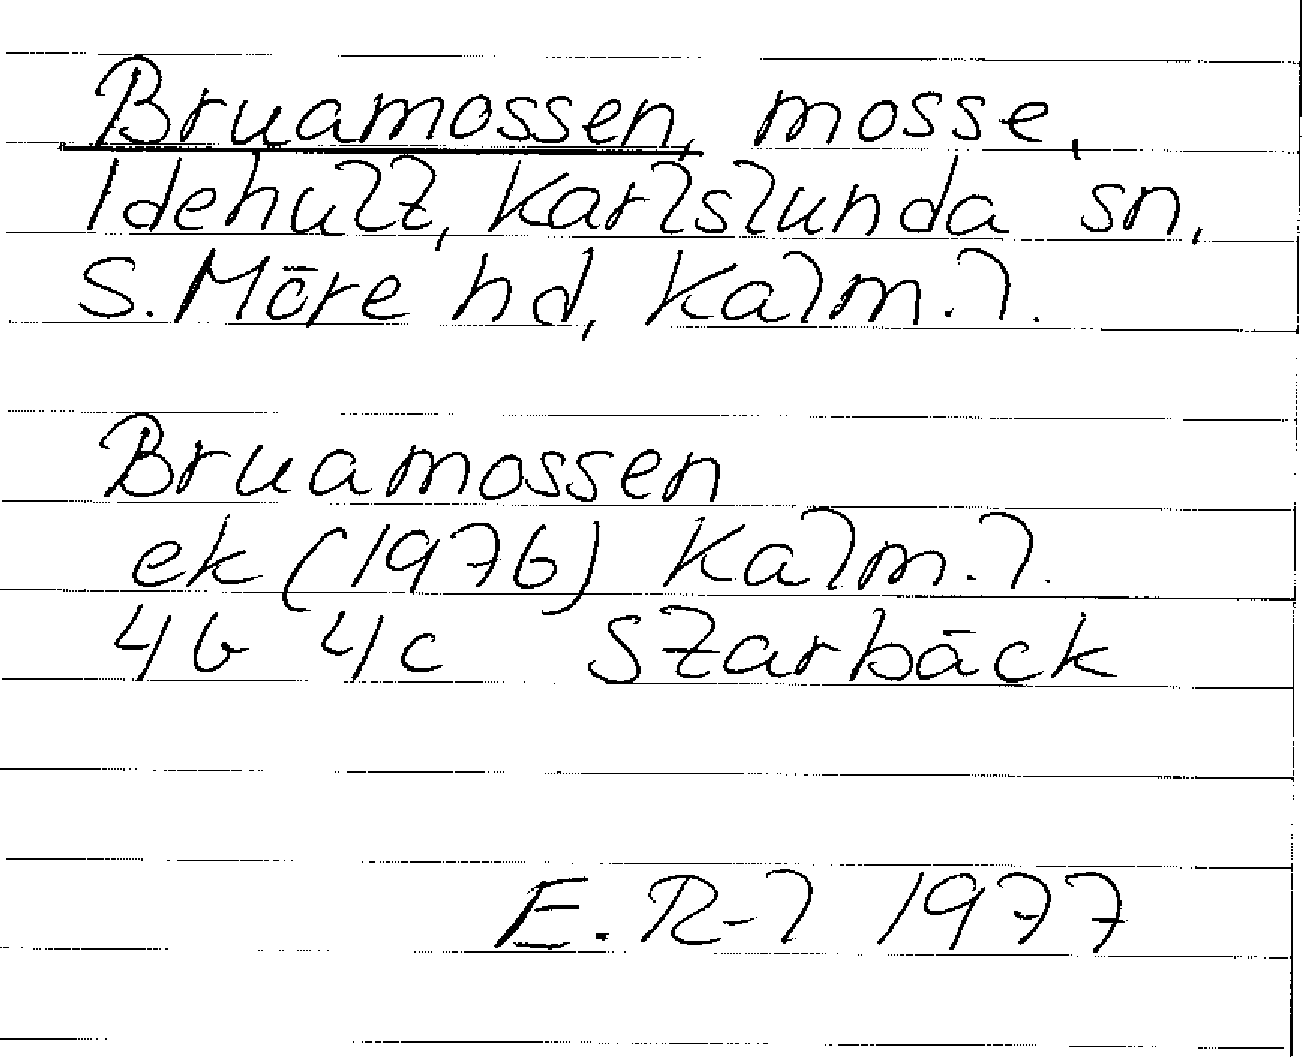 Bruamossen, mosse,
Idehult, Karlslunda sn,
S. Möre hd, Kalm. l.
Bruamossen
ek (1976) Kalm. l.
4G 4c Starbäck
E. R-l 1977